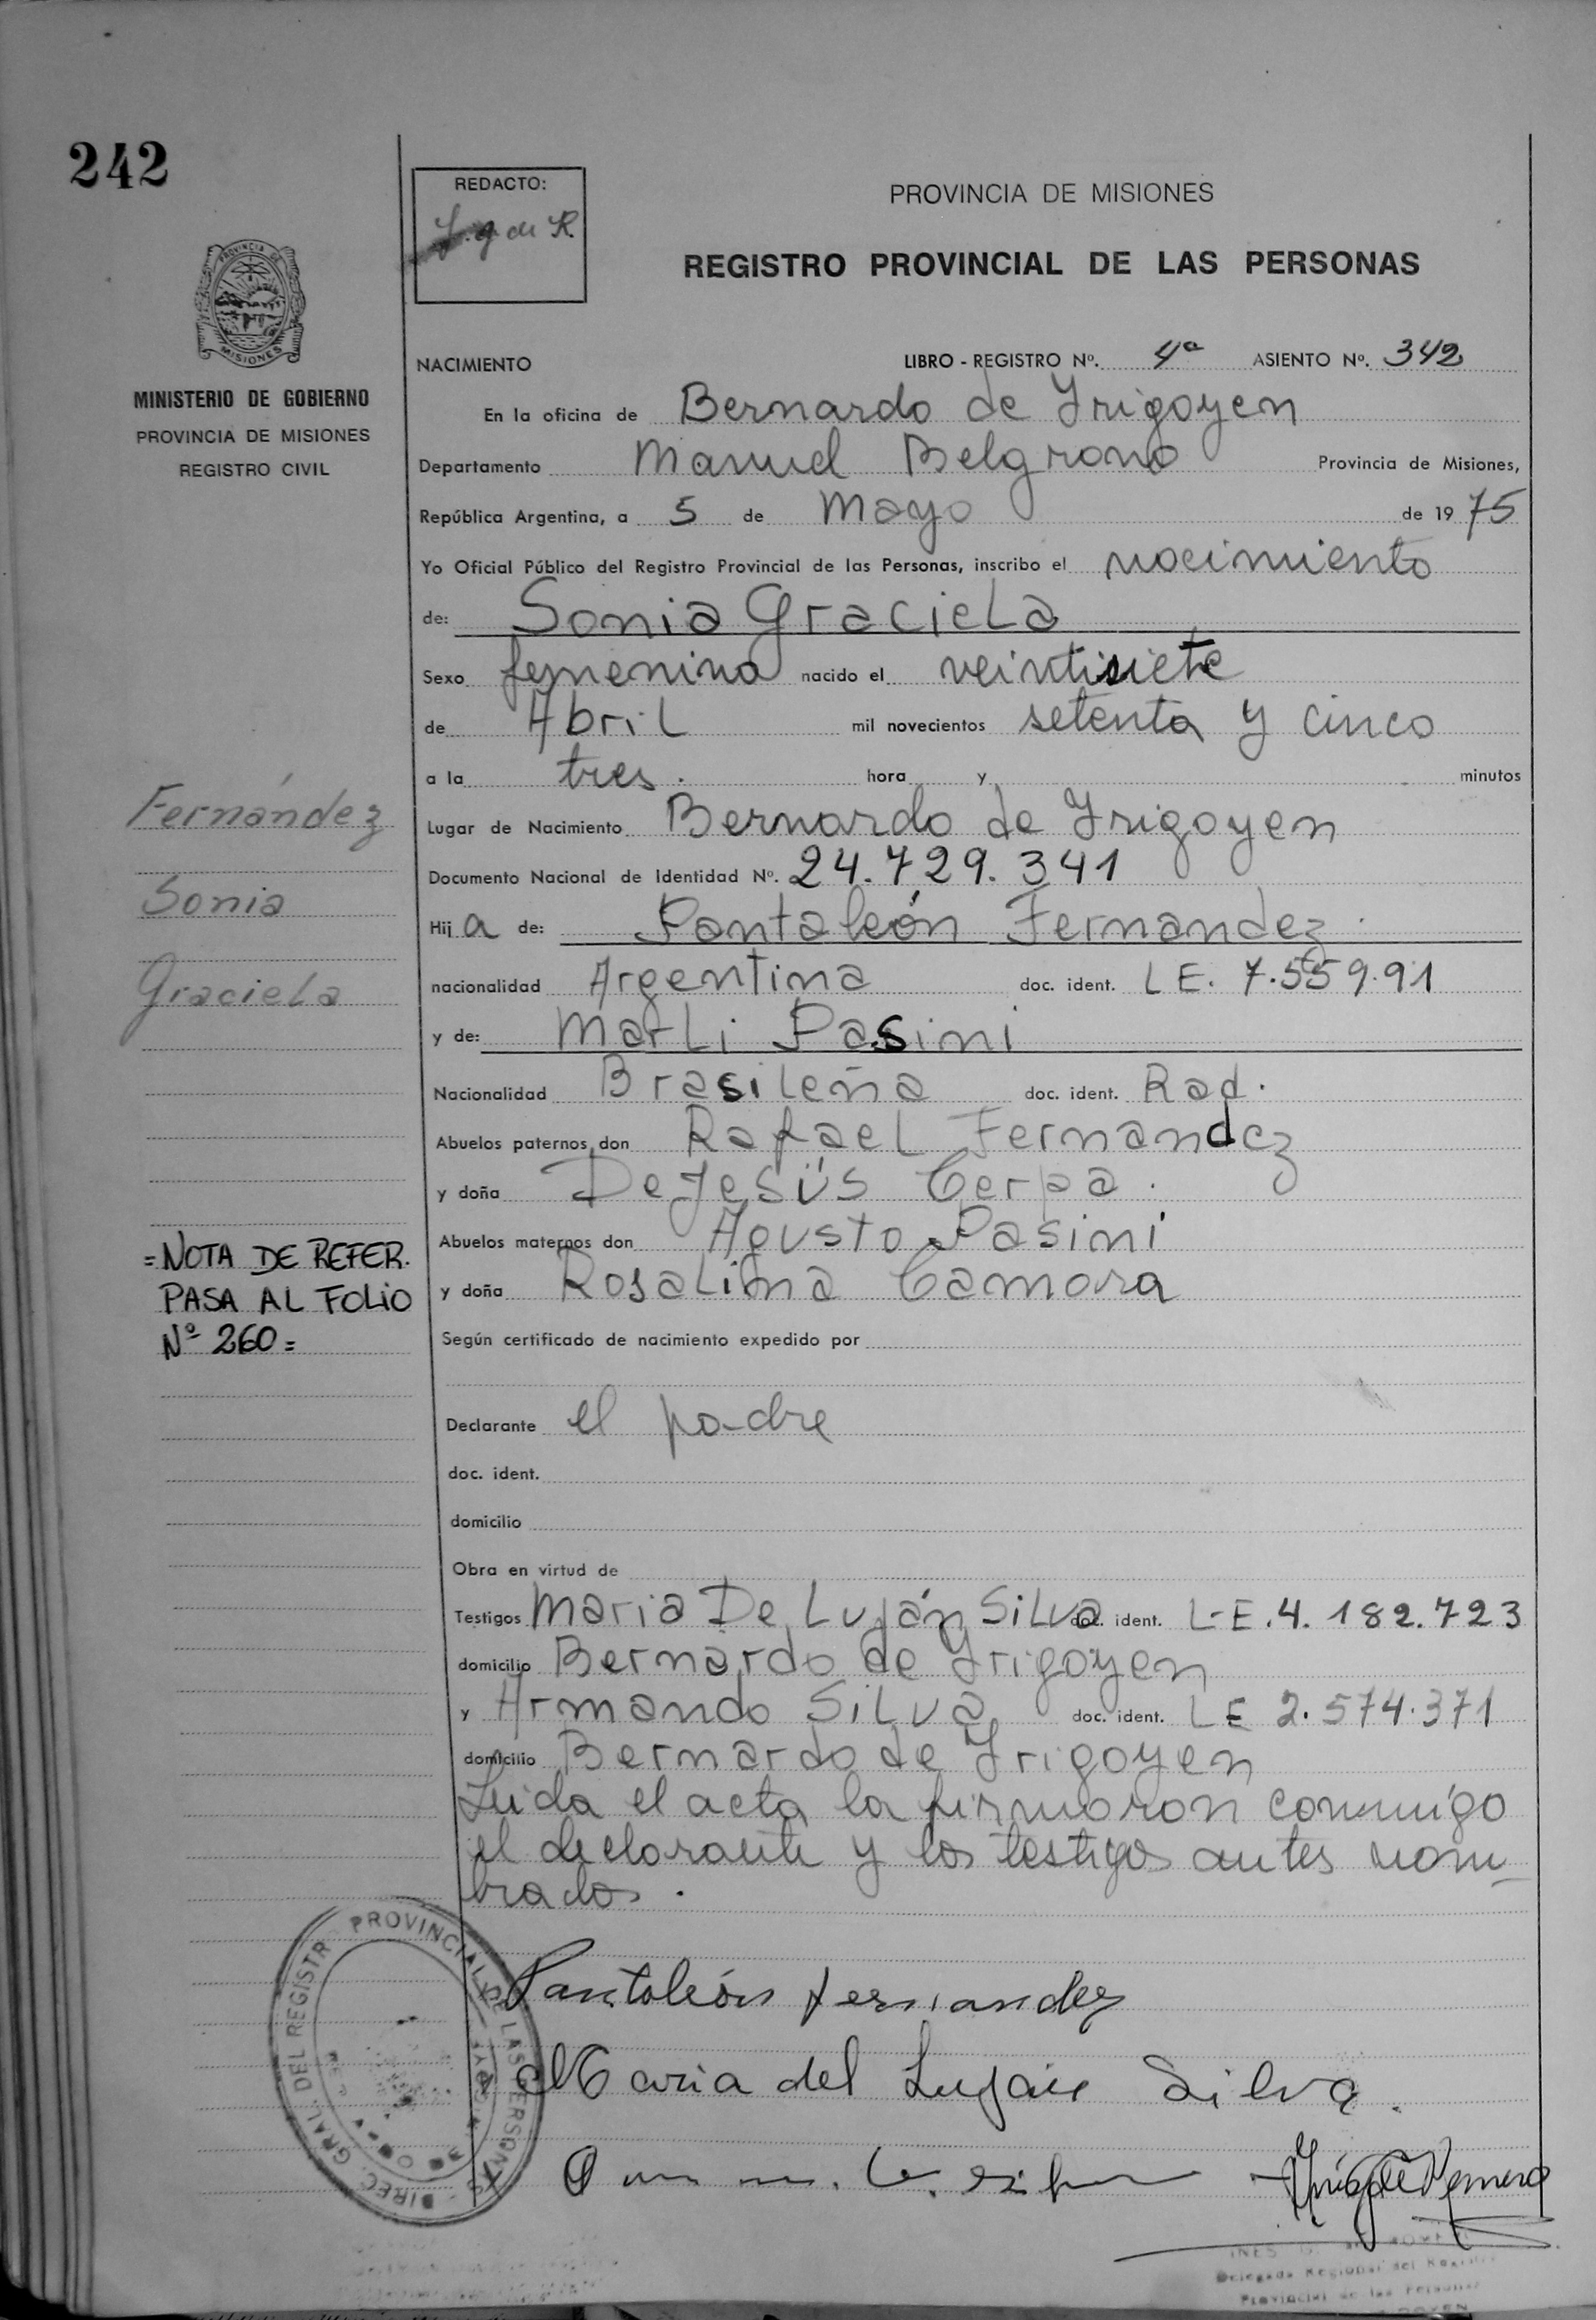 242
REDACTO:
PROVINCIA DE MISIONES
REGISTRO PROVINCIAL DE LAS PERSONAS
PROVINCIA DE
MISIONES
MINISTERIO DE GOBIERNO
PROVINCIA DE MISIONES
REGISTRO CIVIL
NACIMIENTO LIBRO - REGISTRO Nº. 4ª ASIENTO Nº. 342
En la oficina de Bernardo de Yrigoyen
Departamento Manuel Belgrano Provincia de Misiones,
República Argentina, a 5 de Mayo de 1975
Yo Oficial Público del Registro Provincial de las Personas, inscribo el nacimiento
de: Sonia Graciela
Sexo femenino nacido el veintisiete
de Abril mil novecientos setenta y cinco
a la tres. hora y minutos
Fernández
Sonia
Graciela
Lugar de Nacimiento Bernardo de Yrigoyen
Documento Nacional de Identidad Nº. 24.729.341
Hija de: Pantaleón Fernandez.
nacionalidad Argentina doc. ident. LE. 7.559.91
y de: Marli Pasini
Nacionalidad Brasileña doc. ident. Rad.
Abuelos paternos don Rafael Fernandez
y doña De Jesús Cerpa.
Abuelos maternos don Agusto Pasini
y doña Rosalina Camora
=NOTA DE REFER.
PASA AL FOLIO
Nº 260=
Según certificado de nacimiento expedido por
Declarante el padre
doc. ident.
domicilio
Obra en virtud de
Testigos Maria De Luján Silva doc. ident. L-E.4.182.723
domicilio Bernardo de Yrigoyen
y Armando Silva doc. ident. LE 2.574.371
domicilio Bernardo de Yrigoyen
Leida el acta la firmaron conmigo
el declarante y los testigos antes nom-
brados.
Pantaleón Fernandez
Maria del Lujan Silva.
DIREC. GRAL. DEL REGISTR PROVINCIAL DE LAS PERSONAS
Delegada Regional del
Provincial de las Personas